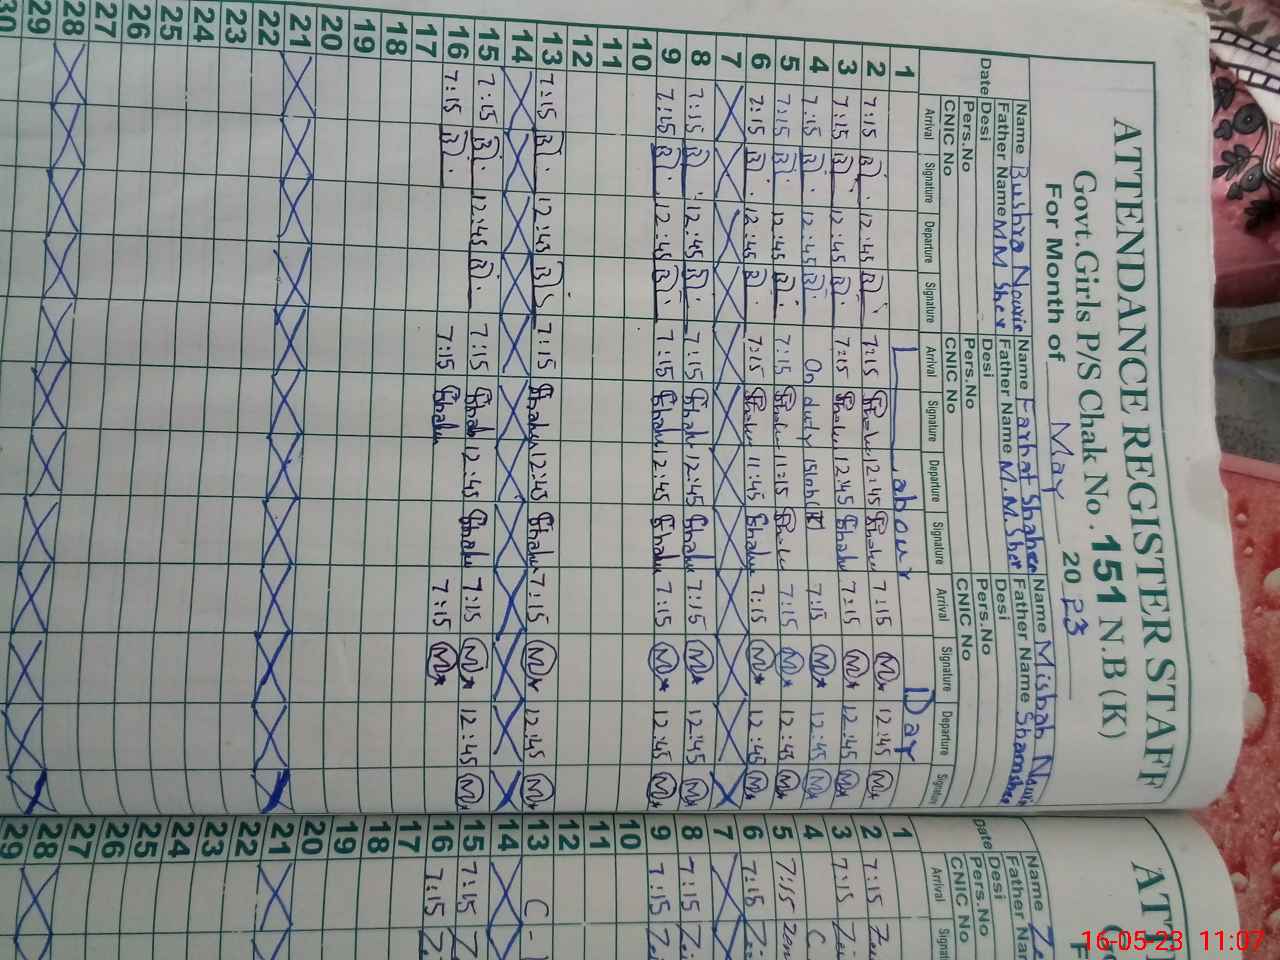 ATTENDANCE REGISTER STAFF
Govt.Girls P/S Chak No. 151 N.B (K)
For Month of May 2023
Name Bushra Name Farhat Shaheen Name Misbah
Father Name M M Sher Father Name M.M.Sher Father Name Shamsher
Desi Desi Desi
Pers.No Pers.No Pers.No
Date CNIC No CNIC No CNIC No
Arrival Signature Departure Signature Arrival Signature Departure Signature Arrival Signature Departure Signature
1 Labour Day
2 7:15 B. 12:45 B. 7:15 Shahe 12:45 Shahe 7:15 M* 12:45 M*
3 7:15 B. 12:45 B. 7:15 Shahe 12:45 Shahe 7:15 M* 12:45 M*
4 7:15 B. 12:45 B. On duty 7:15 M* 12:45 M*
5 7:15 B. 12:45 B. 7:15 Shahe 11:15 Shahe 7:15 M* 12:45 M*
6 7:15 B. 12:45 B. 7:15 Shahe 11:45 Shahe 7:15 M* 12:45 M*
7
8 7:15 B. 12:45 B. 7:15 Shahe 12:45 Shahe 7:15 M* 12:45 M*
9 7:15 B. 12:45 B. 7:15 Shahe 12:45 Shahe 7:15 M* 12:45 M*
10
11
12
13 7:15 B. 12:45 B. 7:15 Shahe 12:45 Shahe 7:15 M* 12:45 M*
14
15 7:15 B. 12:45 B. 7:15 Shahe 12:45 Shahe 7:15 M* 12:45 M*
16 7:15 B. 7:15 Shahe 7:15 M*
17
18
19
20
21
22
23
24
25
26
27
28
29
30
AT
Name
Father Nam
Desi
Pers.No
Date CNIC No
Arrival Signat
1
2 7:15
3 7:15
4 C
5 7:15
6 7:15
7
8 7:15
9 7:15
10
11
12
13 C-
14
15 7:15
16 7:15
17
18
19
20
21
22
23
24
25
26
27
28
29
16-05-23 11:07